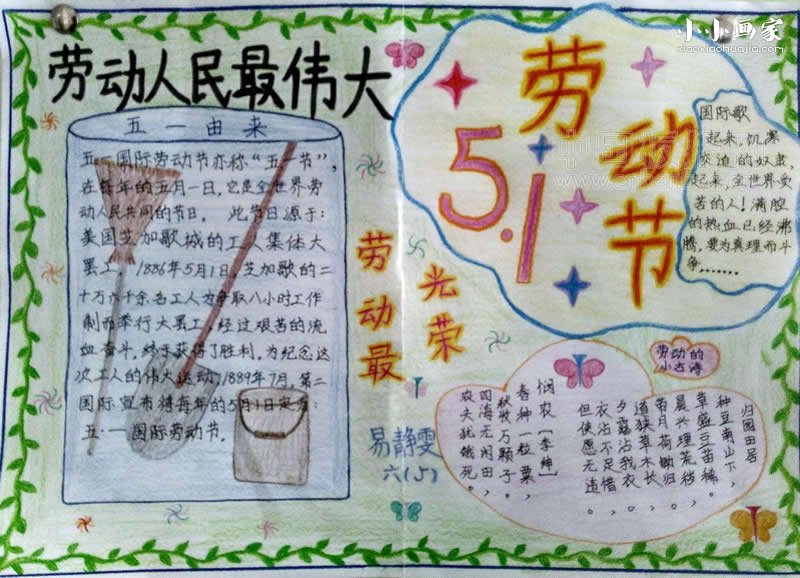 小小画家
xiaoxiaohuajia.com
劳动人民最伟大
五一由来
五一国际劳动节亦称“五一节”,
在每年的五月一日,它是全世界劳
动人民共同的节日。 此节日源于:
美国芝加哥城的工人集体大
罢工,1886年5月1日,芝加歌的二
十万六千余名工人为争取八小时工作
制而举行大罢工,经过艰苦的流
血奋斗,终于获得了胜利,为纪念这
次工人的伟大运动,1889年7月,第二
国际宣布将每年的5月1日定为:
五·一国际劳动节。
劳动最
光荣
易静雯
六(5)
劳动节
5.1
国际歌
起来,饥寒
交迫的奴隶,
起来,全世界受
苦的人!满腔
的热血已经沸
腾,要为真理而斗
争,......
劳动的
小古诗
归园田居
种豆南山下,
草盛豆苗稀
晨兴理荒秽
带月荷锄归。
道狭草木长
夕露沾我衣
衣沾不足惜
但使愿无违。
悯农【李绅】
春种一粒粟,
秋收万颗子。
四海无闲田,
农夫犹饿死。